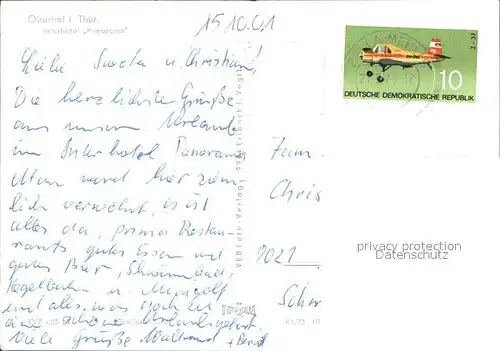 Oberhof i. Thür.
Interhotel „Panorama"
15.10.
Liebe
u. Christian!
Die herzlichsten Grüße
aus unserem Urlaub
im Interhotel Panorama
Man wird hier ziem-
lich verwöhnt, es ist
alles da, prima Restau-
rants gutes Essen und
gutes Bier, Schwimmbad,
Kegelbahn u. Minigolf
und alles, was noch zu
Viele Grüße Waltraud + Bernd
VEB Foto-Verlag
10
DEUTSCHE DEMOKRATISCHE REPUBLIK
Fam.
Chris
7021
Schor
privacy protection
Datenschutz